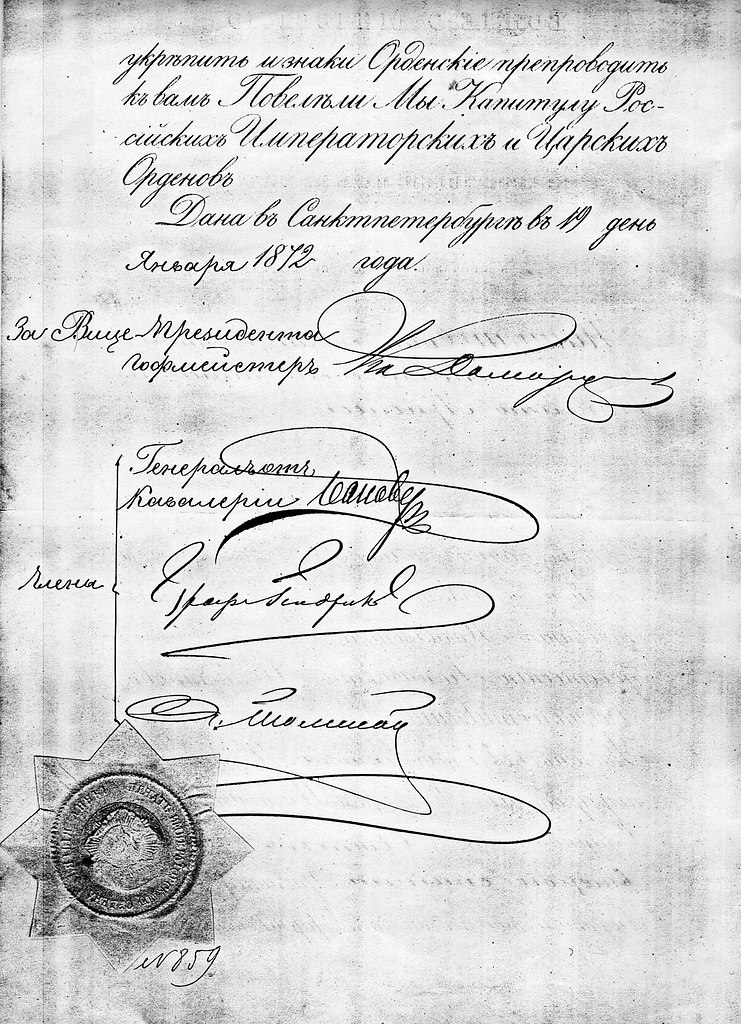 укрѣпить и знаки Орденскіе препроводить
къ вамъ Повелѣли Мы Капитулу Рос-
сійскихъ Императорскихъ и Царскихъ
Орденовъ
Дана въ Санктпетербургѣ въ 19 день
Января 1872 года.
За Вице-Президента
гофмейстеръ
Генералъ отъ
Кавалеріи
Члены
Графъ
№ 859